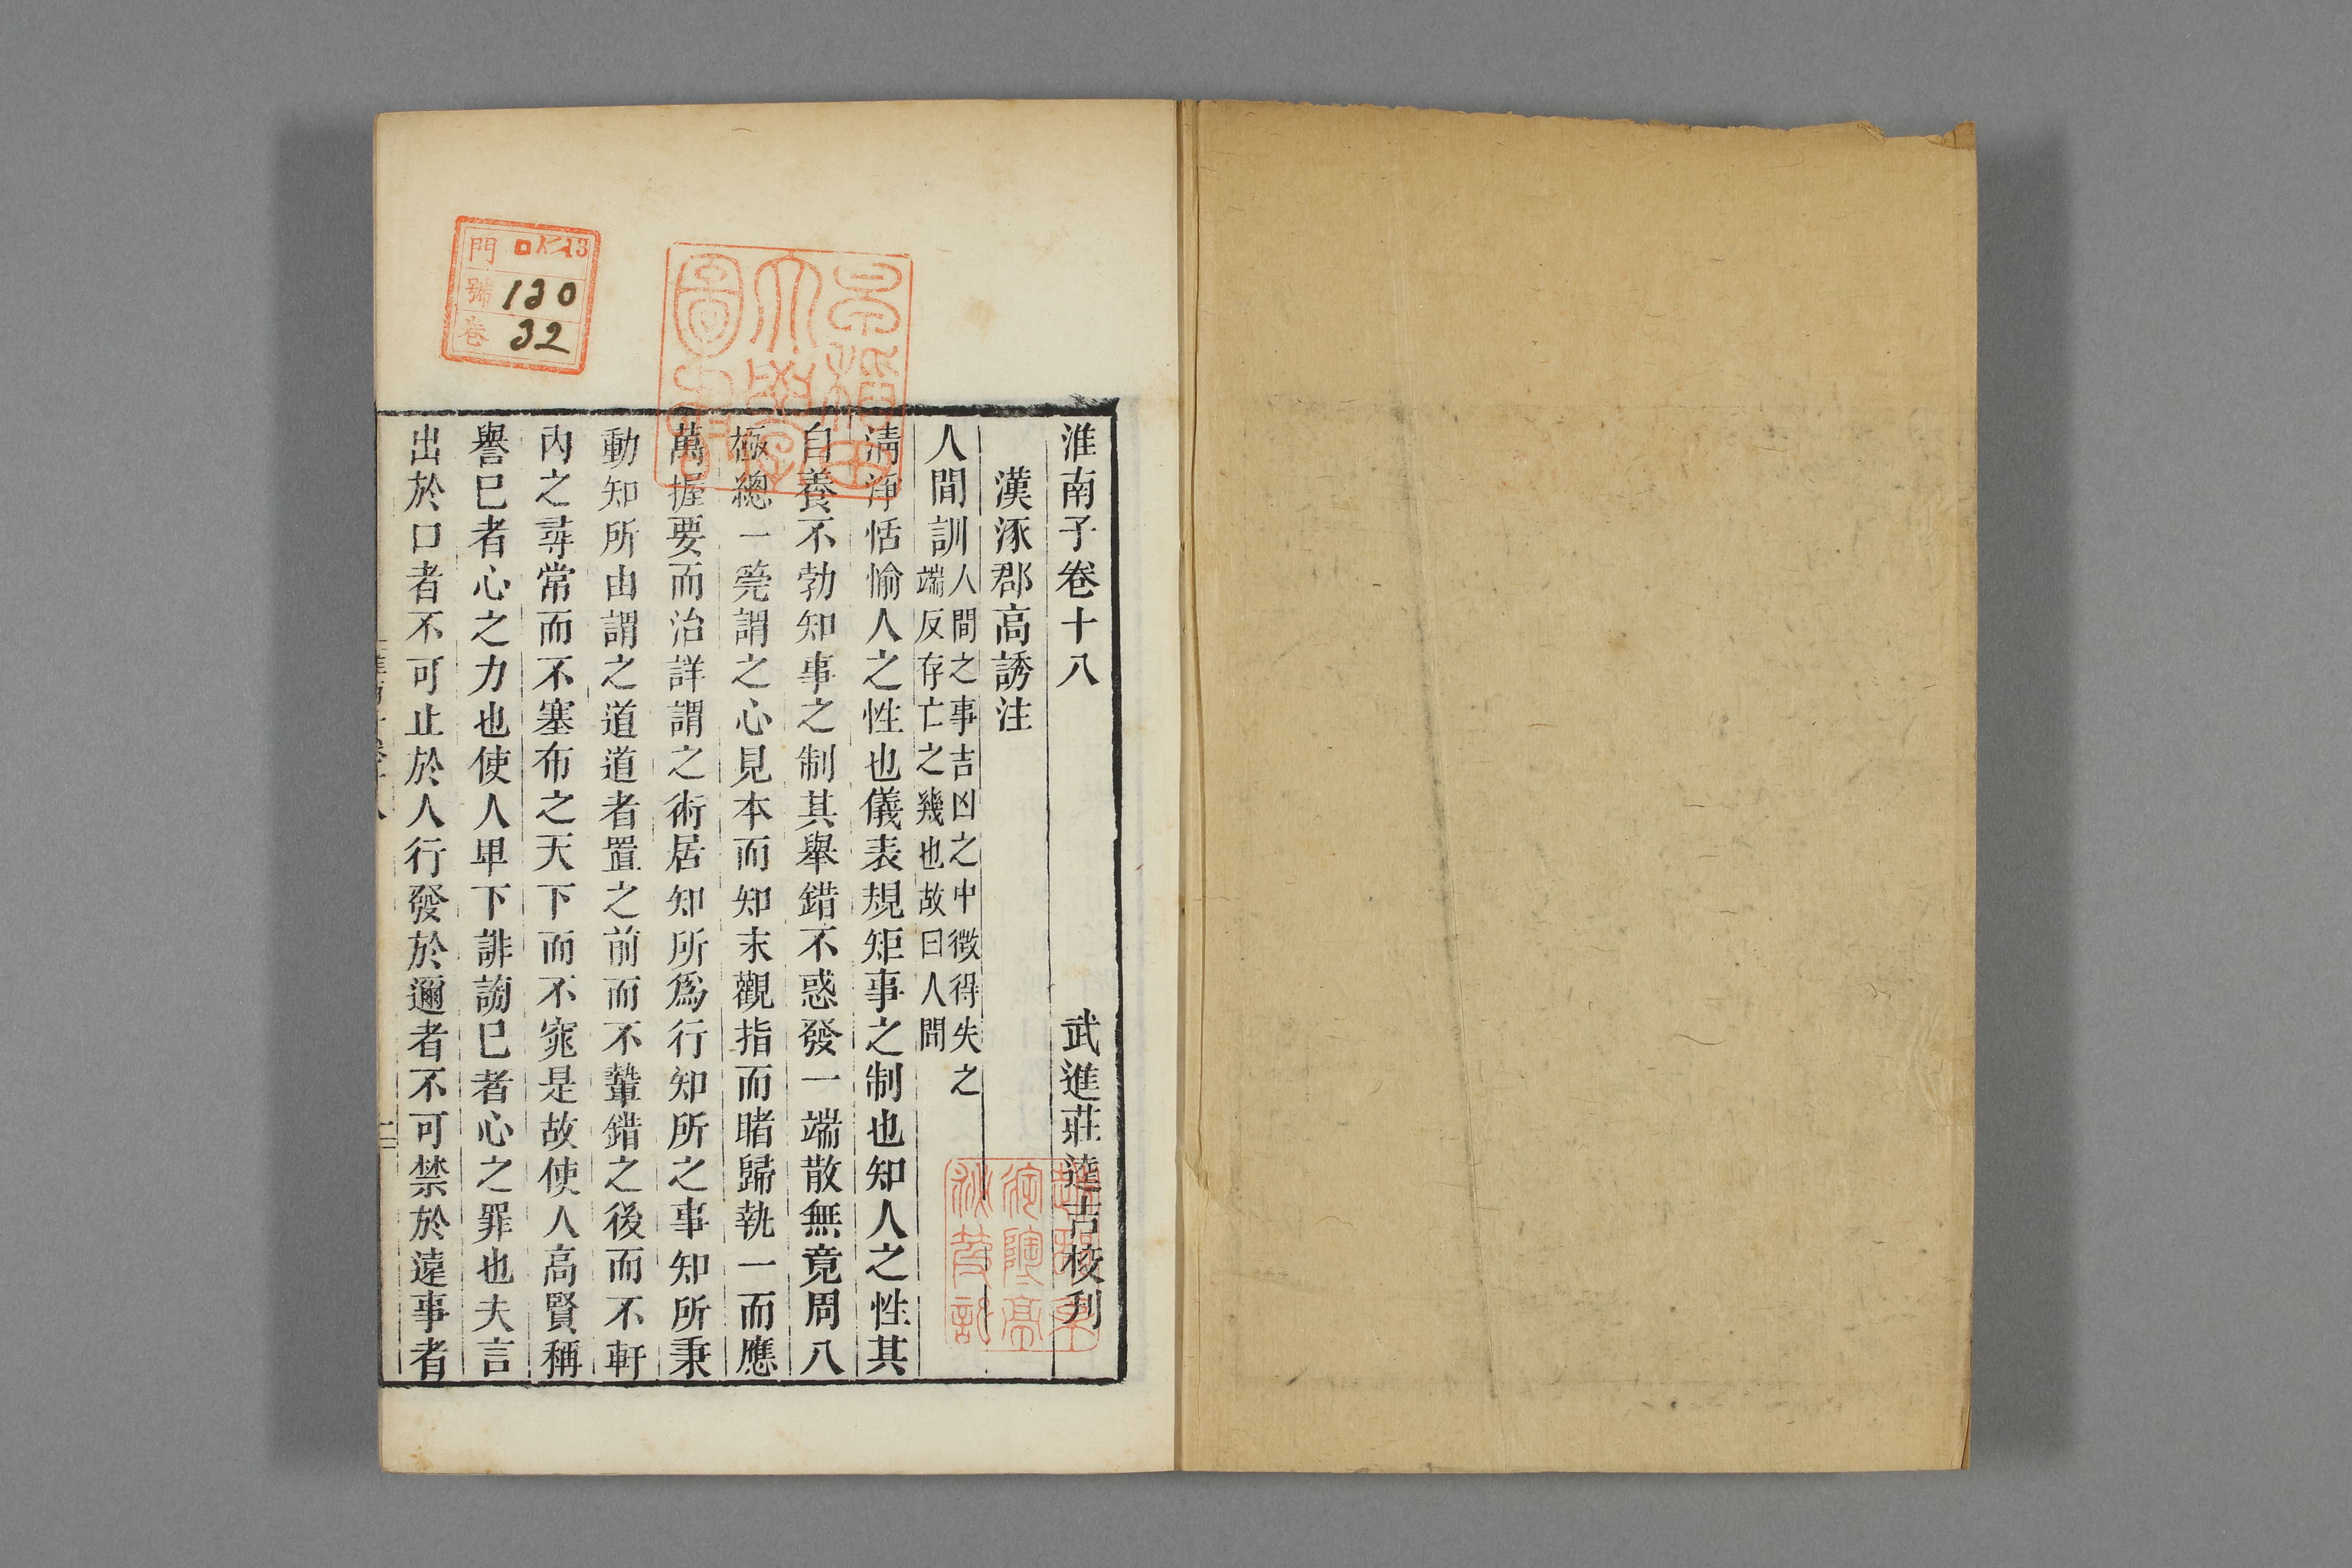 淮南子卷十八
武進莊逵吉校刋
漢涿郡高誘注
人間訓
人間之事吉凶之中徴得失之
端反存亡之幾也故曰人間
清淨恬愉人之性也儀表規矩事之制也知人之性其
自養不勃知事之制其舉錯不惑發一端散無竟周八
極總一筦謂之心見本而知末觀指而睹歸執一而應
萬握要而治詳謂之術居知所爲行知所之事知所秉
動知所由謂之道道者置之前而不摯錯之後而不軒
內之尋常而不塞布之天下而不窕是故使人高賢稱
譽已者心之力也使人卑下誹謗已者心之罪也夫言
出於口者不可止於人行發於邇者不可禁於遠事者
早稻田大學圖書
門
號 120
卷 32